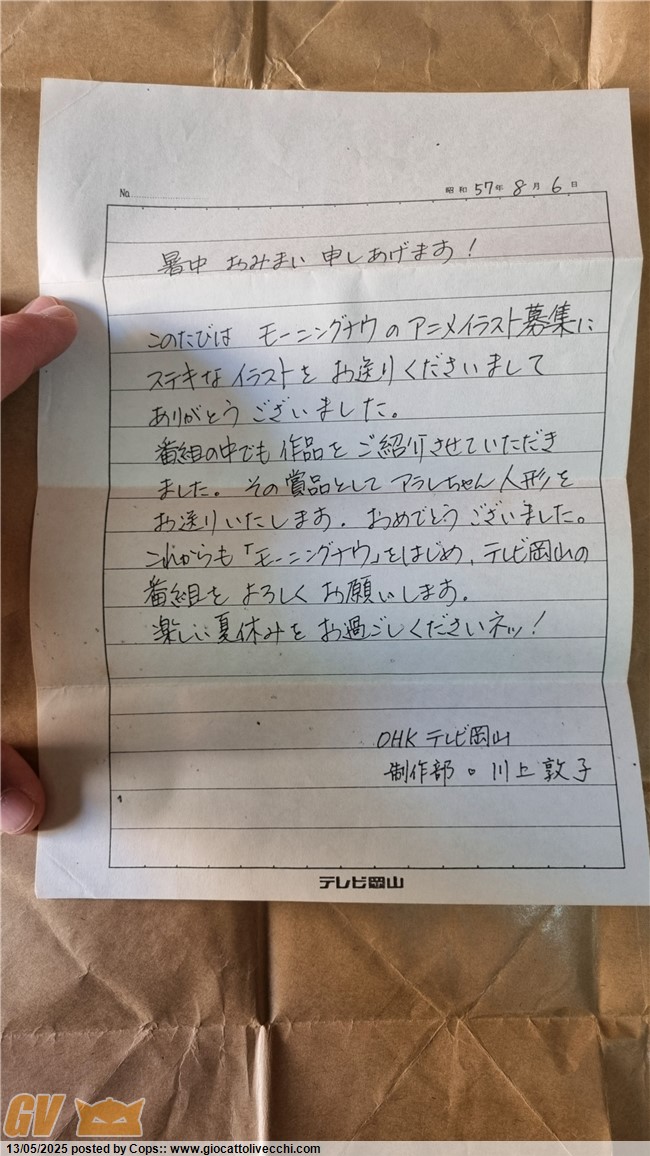 No.
昭和57年8月6日
暑中 おみまい 申しあげます!
このたびは モーニングナウ の アニメイラスト募集に
ステキな イラストを お送りくださいまして
ありがとう ございました。
番組の中でも 作品を ご紹介させていただき
ました。 その賞品として アラレちゃん 人形を
お送りいたします. おめでとう ございました。
これからも「モーニングナウ」をはじめ、テレビ岡山の
番組を よろしく お願いします.
楽しい夏休みを お過ごしくださいネッ!
OHK テレビ岡山
制作部 。 川上 敦子
テレビ岡山
GV
13/05/2025 posted by Cops:: www.giocattolivecchi.com